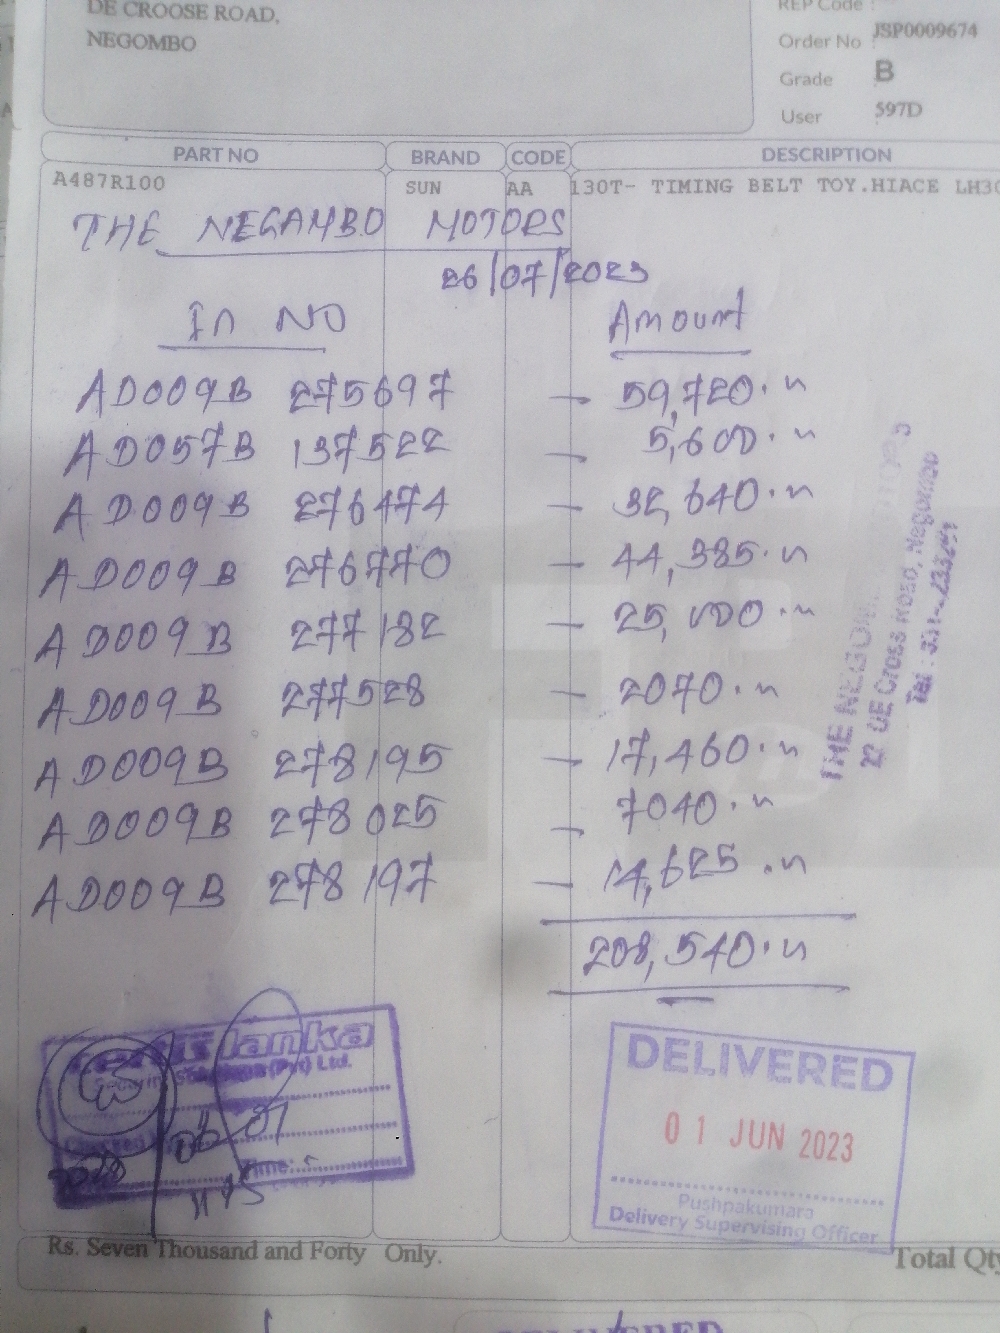 DE CROOSE ROAD,
NEGOMBO
REP Code :
Order No : JSP0009674
Grade B
User : 597D
PART NO BRAND CODE DESCRIPTION
A487R100 SUN AA 130T- TIMING BELT TOY.HIACE LH30
THE NEGAMBO MOTORS
26/07/2023
In NO Amount
AD009B 275697 — 59,720.n
AD057B 137522 — 5,600.n
AD009B 276474 — 32,640.n
AD009B 276770 — 44,385.n
AD009B 277182 — 25,000.n
AD009B 277528 — 2070.n
AD009B 278195 — 17,460.n
AD009B 278025 — 7040.n
AD009B 278197 — 14,625.n
208,540.n
THE NEGOM
22, DE Cross Road, Negombo
Tel : 031-
lanka
(Pvt) Ltd.
Time:
DELIVERED
01 JUN 2023
Pushpakumara
Delivery Supervising Officer
Rs. Seven Thousand and Forty Only.
Total Qty
DELIVERED